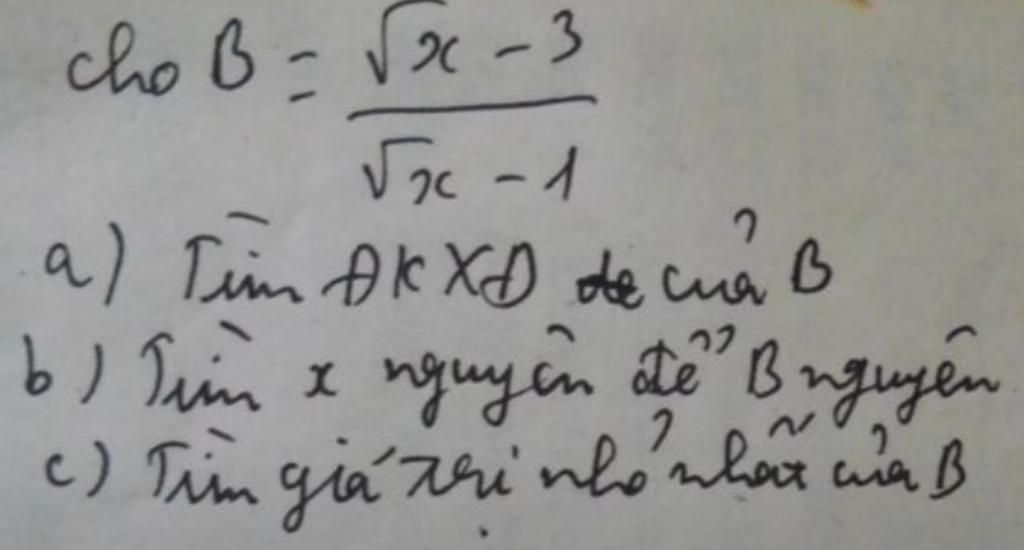 cho B = \frac{\sqrt{x} - 3}{\sqrt{x} - 1}
a) Tìm ĐKXĐ của B
b) Tìm x nguyên để B nguyên
c) Tìm giá trị nhỏ nhất của B